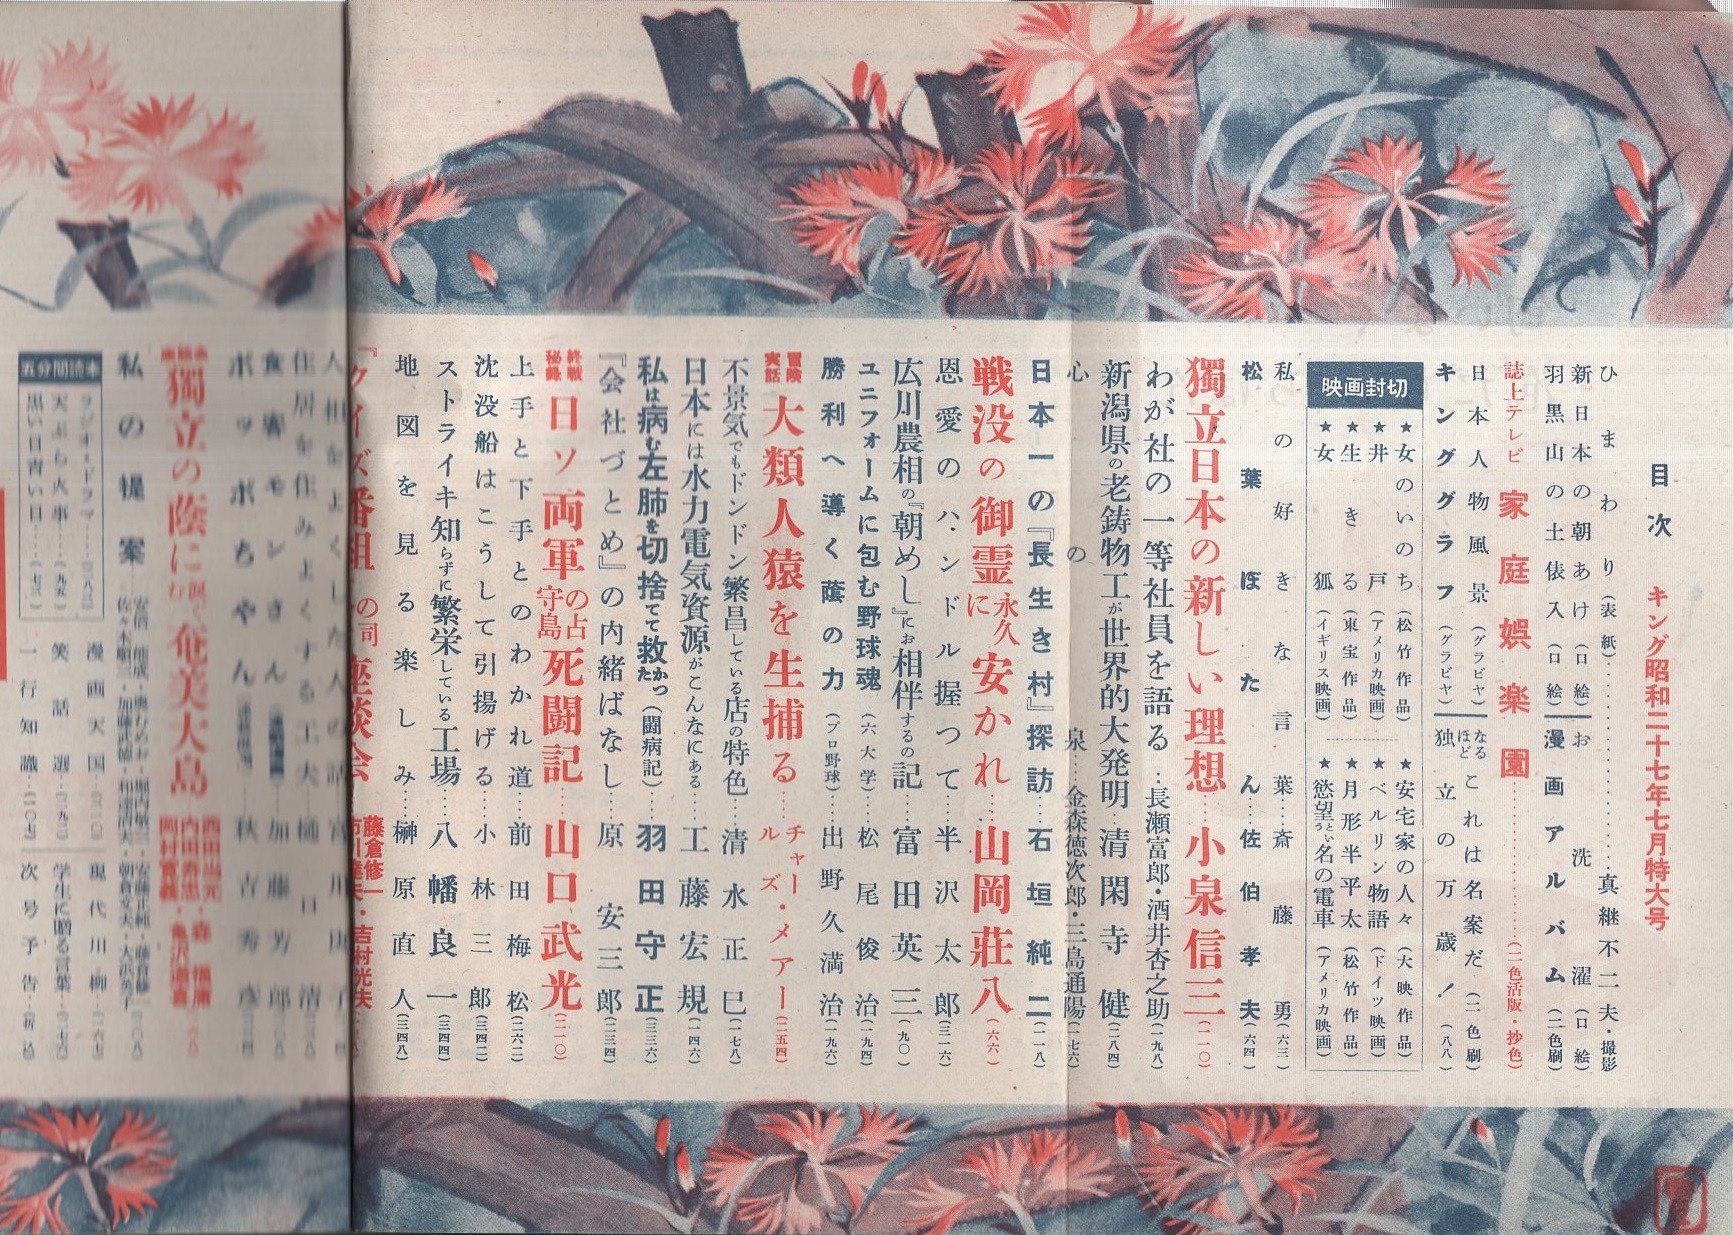 目次 キング昭和二十七年七月特大号
ひまわり(表紙)……真継不二夫・撮影
新日本の朝あけ(口絵) お洗濯(口絵)
羽黒山の土俵入(口絵) 漫画アルバム(二色刷)
誌上テレビ 家庭娯楽園……(二色活版・抄色)
日本人物風景(グラビヤ) なるほどこれは名案だ(二色刷)
キンググラフ(グラビヤ) 独立の万歳!(八八)
映画封切
★女のいのち(松竹作品) ★安宅家の人々(大映作品)
★井戸(アメリカ映画) ★ベルリン物語(ドイツ映画)
★生きる(東宝作品) ★月形半平太(松竹作品)
★女狐(イギリス映画) ★慾望という名の電車(アメリカ映画)
私の好きな言葉…斎藤勇(六三)
松葉ぼたん…佐伯孝夫(六四)
獨立日本の新しい理想…小泉信三(二一〇)
わが社の一等社員を語る…長瀬富郎・酒井杏之助(一九八)
新潟県の老鋳物工が世界的大発明…清閑寺健(二八四)
心の泉…金森徳次郎・三島通陽(一七六)
日本一の『長生き村』探訪…石垣純二(一一八)
戦没の御霊に永久安かれ…山岡荘八(六六)
恩愛のハンドル握つて…半沢太郎(三一六)
広川農相の『朝めし』にお相伴するの記…富田英三(九〇)
ユニフォームに包む野球魂(六大学)…松尾俊治(一九四)
勝利へ導く蔭の力(プロ野球)…出野久満治(一九六)
冒険実話 大類人猿を生捕る…チャールズ・メアー(二五四)
不景気でもドンドン繁昌している店の特色…清水正巳(一七八)
日本には水力電気資源がこんなにある…工藤宏規(一四六)
私は病む左肺を切捨てて救かった(闘病記)…羽田守正(三三六)
『会社づとめ』の内緒ばなし…原安三郎(三三四)
終戦秘録 日ソ両軍の占守島死闘記…山口武光(二二〇)
上手と下手とのわかれ道…前田梅松(二六二)
沈没船はこうして引揚げる…小林三郎(三四二)
ストライキ知らずに繁栄している工場…八幡良一(三四四)
地図を見る楽しみ…榊原直人(三四八)
『クイズ番組』の司 座談会 藤倉修一・吉村光夫
人相をよくした人の話
住居を住みよくする工夫…樋口清
食客モンさん…加藤芳郎
ポッポちゃん…秋吉秀彦
獨立の蔭に涙ぐむ奄美大島
私の提案
五分間読本
ラジオ・ドラマ…(二八三)
天ぷら火事…(九五)
黒い日青い日…(七三)
漫画天国…(三二〇) 現代川柳…(二六七)
笑話選…(二九二) 学生に贈る言葉…(二七六)
一行知識…(一〇七) 次号予告…(折込)